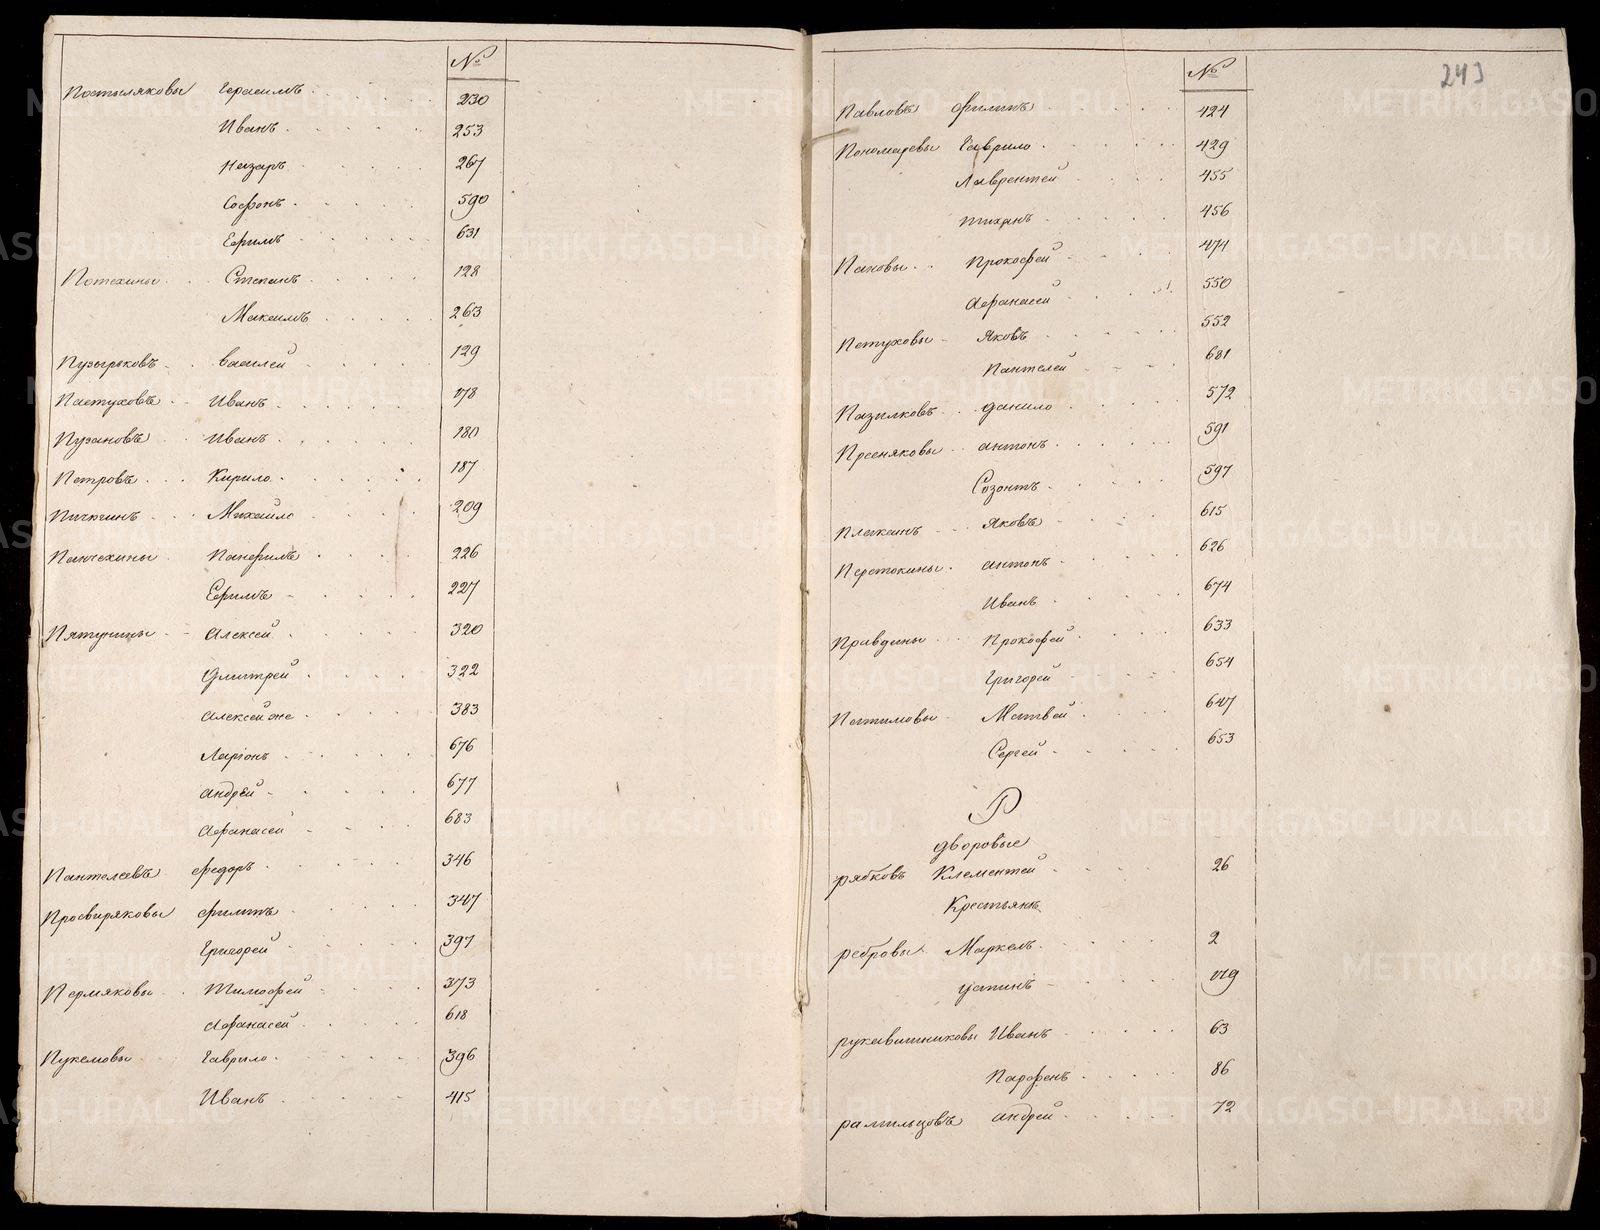 №
Постыляковы Герасимъ 230
Иванъ 253
Назаръ 267
Софронъ 590
Ефимъ 631
Потехины Степанъ 128
Максимъ 263
Пузырьковъ василей 129
Пастуховъ Иванъ 178
Пузановъ Иванъ 180
Петровъ Кирило 187
Пичюгинъ Михайло 209
Панчехины Панфилъ 226
Ефимъ 227
Пятунины Алексей 320
Дмитрей 322
Алексей же 383
Ларіонъ 676
андрей 677
Афанасей 683
Пантелеевъ федоръ 346
Просвиряковы филипъ 347
Григорей 397
Пермяковы Тимофей 373
Афанасей 618
Пукемовы Гаврило 396
Иванъ 415
№
243
Павловъ филипъ 424
Пономаревы Гаврило 429
Лаврентей 455
тиханъ 456
Пановы Прокофей 474
Афанасей 550
Петуховы Яковъ 552
Пантелей 681
Пазилковъ данило 572
Пресняковы антонъ 591
Созонтъ 597
Плеханъ Яковъ 615
Перетокины антонъ 626
Иванъ 674
Правдины Прокофей 633
Григорей 654
Пахимовы Матвей 647
Сергей 653
Р
дворовые
рябковъ Клементей 26
Крестьянъ
ребровы Маркелъ 2
устинъ 179
рукавишниковы Иванъ 63
Парфенъ 86
ратильцовъ андрей 72
METRIKI.GASO-URAL.RU